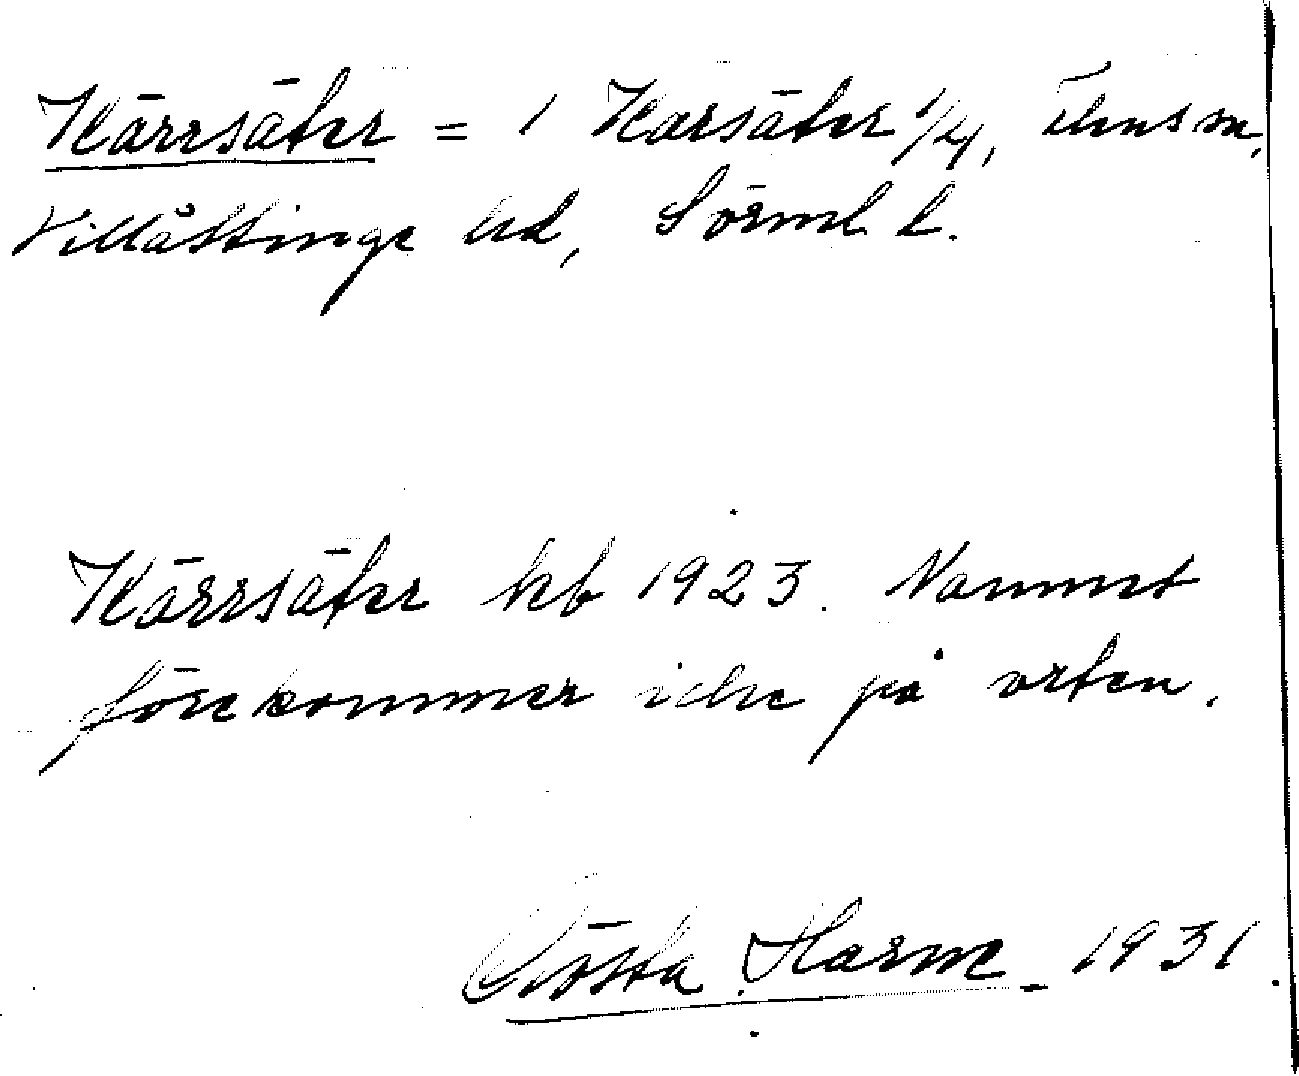 Kärrsäter = 1 Karsäter 1/4, Flens sn,
Villåttinge hd, Sörml. l.
Kärrsäter kb 1923. Namnet
förekommer icke på orten.
Gösta Harne 1931